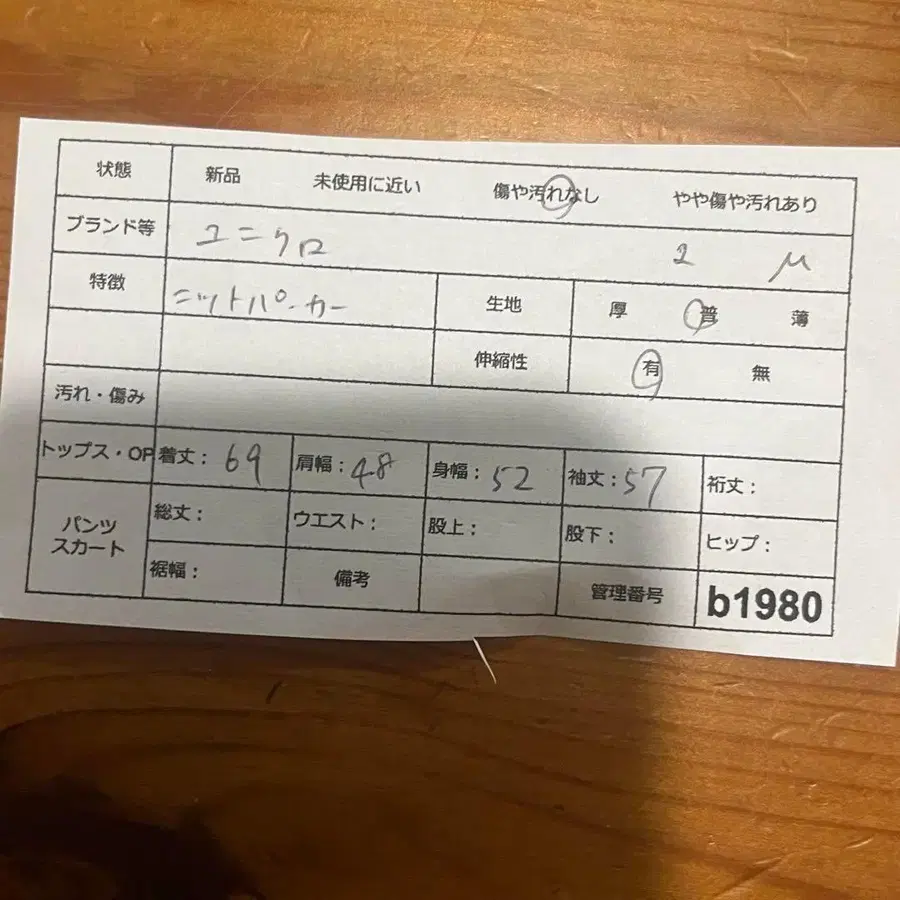 状態 新品 未使用に近い 傷や汚れなし やや傷や汚れあり
ブランド等 ユニクロ
特徴 ニットパーカー 生地 厚 普 薄
伸縮性 有 無
汚れ・傷み
トップス・OP 着丈: 69 肩幅: 48 身幅: 52 袖丈: 57 裄丈:
パンツ スカート 総丈: ウエスト: 股上: 股下: ヒップ:
裾幅: 備考 管理番号 b1980